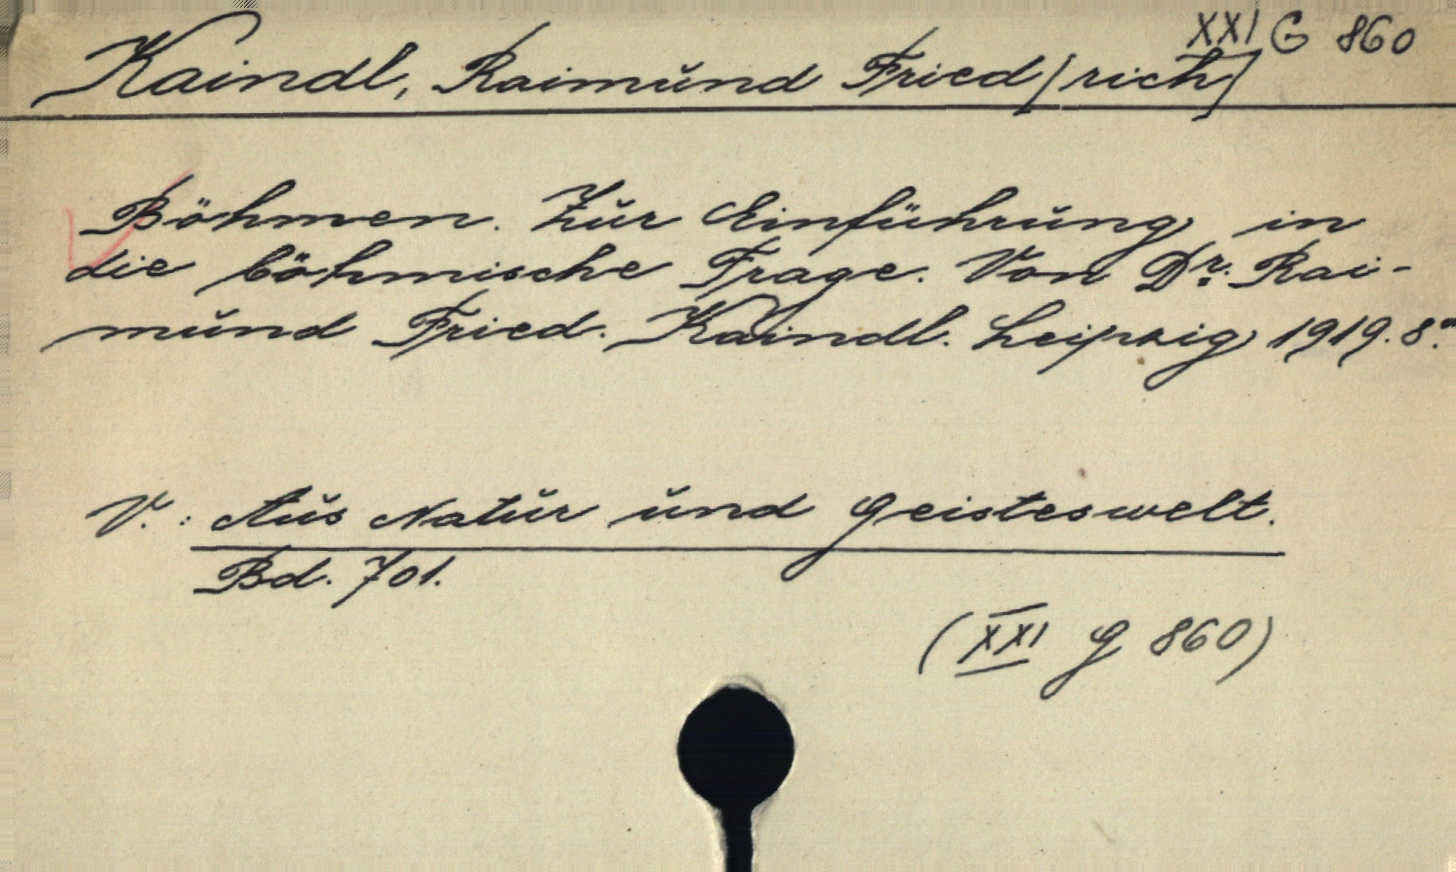 XXI G 860
Kaindl, Raimund Fried[rich]
Böhmen. Zur Einführung in
die böhmische Frage. Von Dr. Rai-
mund Fried. Kaindl. Leipzig 1919. 8.°
V.: Aus Natur und Geisteswelt.
Bd. 701.
(XXI G 860)